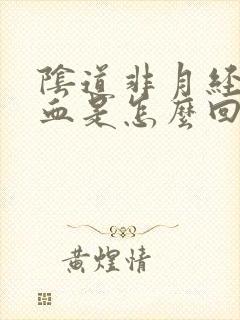 陰道非月經
血是怎麼回
黃煌情